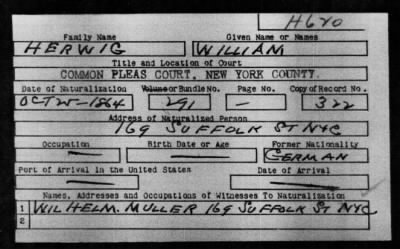 H620
Family Name Given Name or Names
HERWIG WILLIAM
Title and Location of Court
COMMON PLEAS COURT, NEW YORK COUNTY.
Date of Naturalization Volume or Bundle No. Page No. Copy of Record No.
OCT 25-1864 291 — 322
Address of Naturalized Person
169 SUFFOLK ST NYC
Occupation Birth Date or Age Former Nationality
— — GERMAN
Port of Arrival in the United States Date of Arrival
— —
Names, Addresses and Occupations of Witnesses To Naturalization
1 WILHELM. MULLER 169 SUFFOLK ST NYC
2